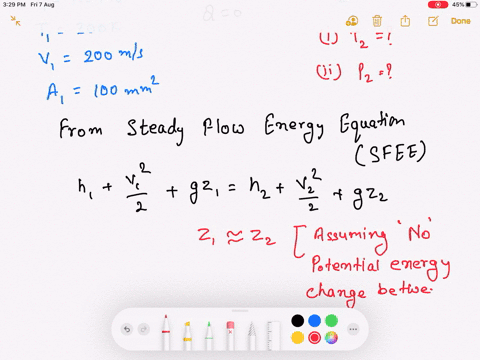 3:29 PM Fri 7 Aug
45%
Done
Q=0
V₁ = 200 m/s
A₁ = 100 mm²
(i) T₂ = ?
(ii) P₂ = ?
From Steady Flow Energy Equation
(SFEE)
h₁ + V₁²/2 + gz₁ = h₂ + V₂²/2 + gz₂
Z₁ ≈ Z₂ [Assuming 'No'
Potential energy
change betwe